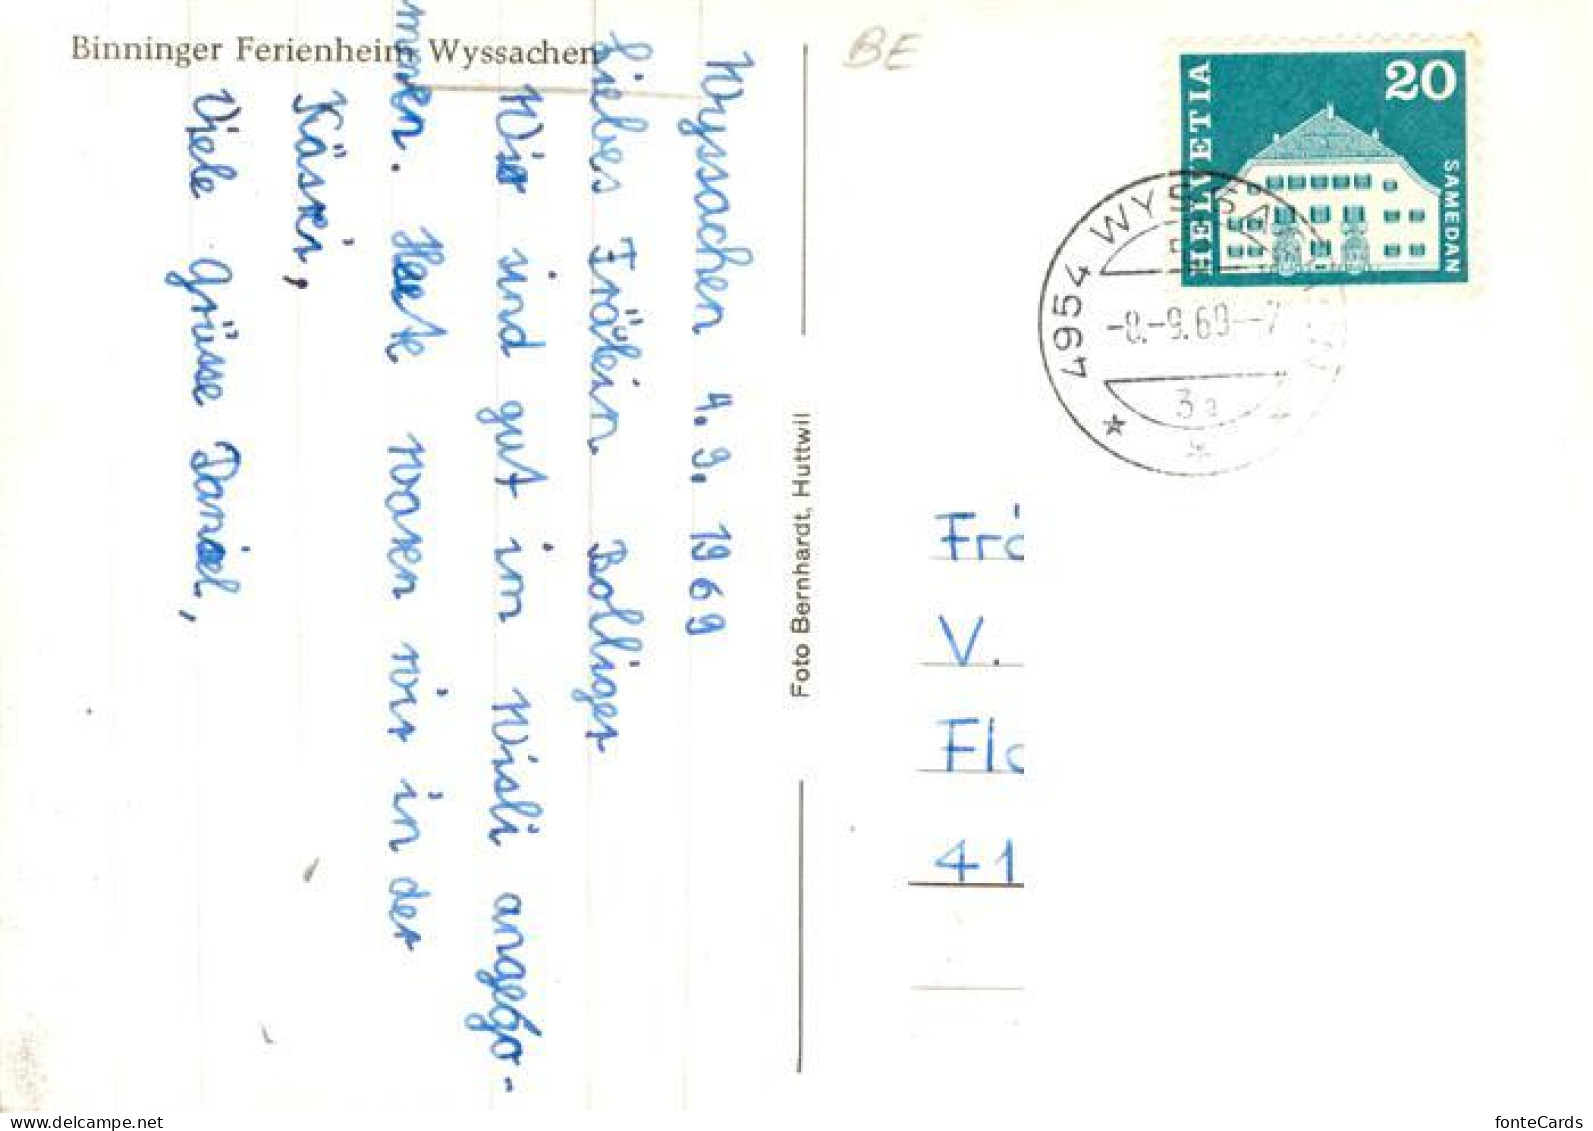 Binninger Ferienheim Wyssachen
BE
HELVETIA
20
SAMEDAN
4954 WYSSA
-8.-9.69--7
3a
Wyssachen 4. 9. 1969
Liebes Fräulein Bollinger
Wir sind gut im Wisli angego-
mmen. Heute waren wir in der
Käserei,
Viele Grüsse Daniel,
Foto Bernhardt, Huttwil
Frä
V.
Flo
41
fonteCards
www.delcampe.net